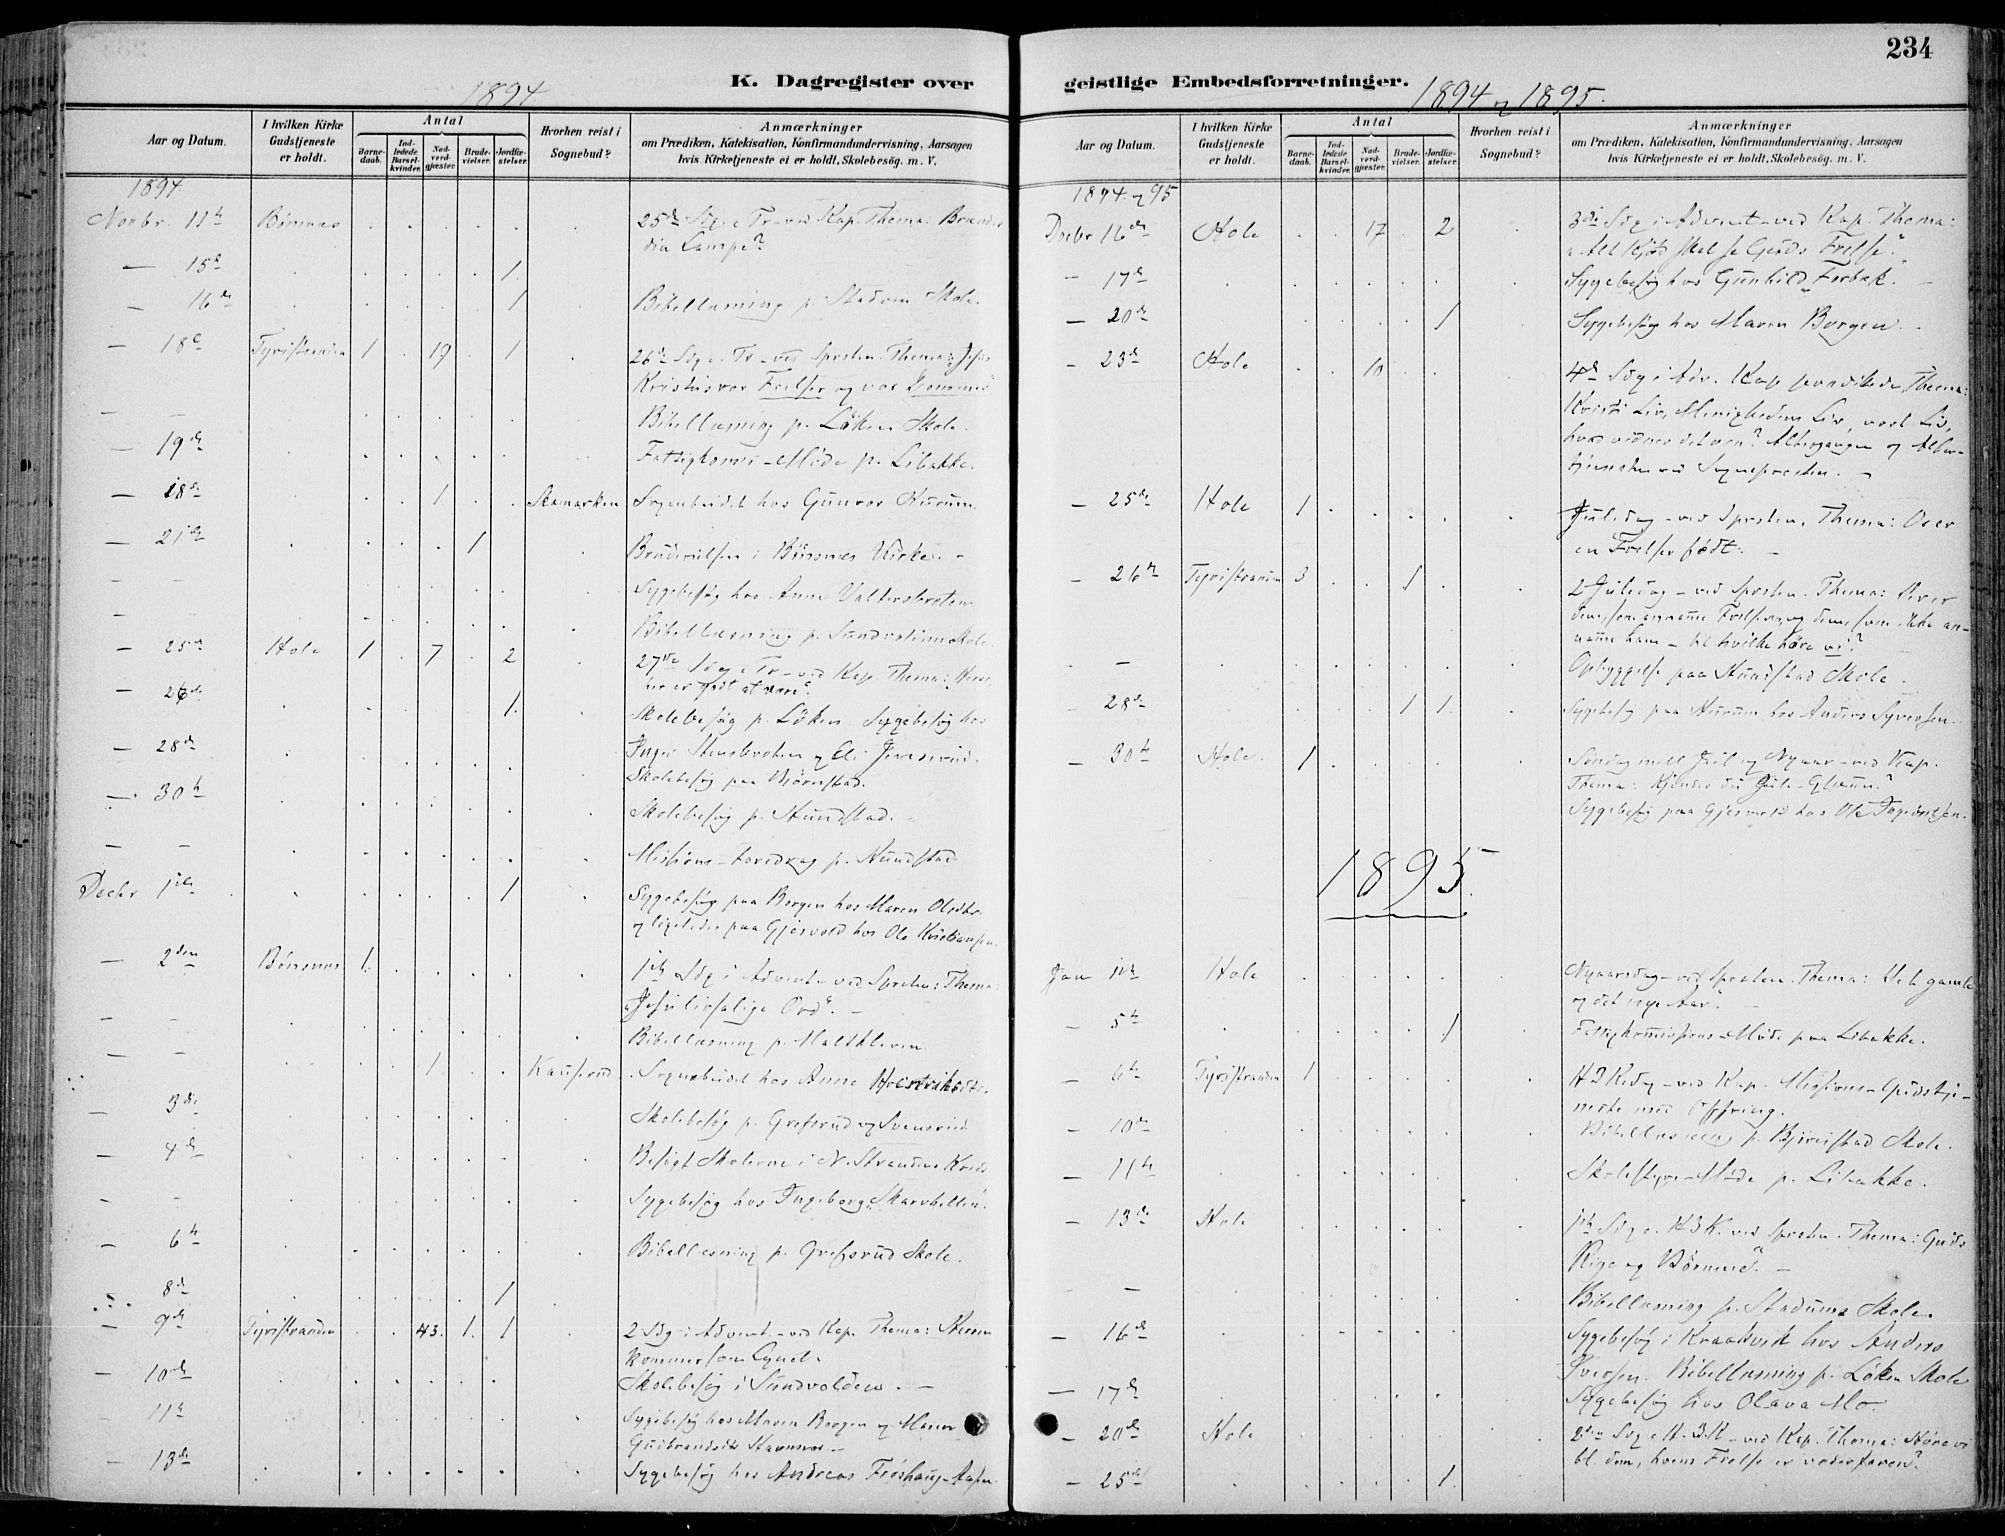 234
K. Dagregister over
1894
Aar og Datum. I hvilken Kirke Gudstjeneste er holdt. Antal Barnedaab. Indledede Barselkvinder. Nadverdgjæster. Brudevielser. Jordfæstelser. Hvorhen reist i Sognebud? Anmærkninger om Prædiken, Katekisation, Konfirmandundervisning, Aarsagen hvis Kirketjeneste ei er holdt, Skolebesög. m. V.
1894
Novbr. 11te Bönsnes 25de Sög. e Tr - ved Kap. Thema: Brænder
din Lampe?
— 15de 1
— 16de 1 Bibellæsning p. Stadum Skole.
— 18de Tyristranden 1 19 1 26de Sög e. Tr - ved Sprsten. Thema: Jesus
Kristus vor Frelser og vor Dommer
— — Bibellæsning p. Löken Skole.
— 19de Fattigkomi-Möde p. Libakke.
— 18de 1 Sognebudet hos Gunvor
— 21de 1 Brudevielsen i Bönsnes Kirke. -
— — Sygebesög hos Anne
— — Bibellæsning p. Sundvolden Skole
— 25de Hole 1 7 2 27de Sög e Tr - ved Kap. Thema: Herre,
her er godt at være.
— 26de 1 Skolebesög p. Löken Sygebesög hos
— 28de Inger Stensbroten og Eli
Skolebesög paa Björnstad.
— 30te Skolebesög p. Hundstad.
— — Missions-Foredrag p. Hundstad
Decbr 1ste 1 Sygebesög paa Borgen hos Maren Olsdtr.
og ligeledes paa Gjesvold hos Ole Kristiansen.
— 2den Bönsnes 1 1ste Sög i Advent - ved Sprsten: Thema:
Jesu livsalige Ord". —
— — Bibellæsning p.
— — 1 Sognebudet hos Anne
— 3die Skolebesög p. Grefsrud og Svensrud
— 4de Besögt Skolerne i N. Strandens Kreds
— — Sygebesög hos Ingeborg
— 6te Bibellesning p. Grefsrud Skole.
— 8de 1
— 9de Tyristranden 43 1 1 2 Sög i Advent - ved Kap. Thema: Herren
kommer som
— 10de Skolebesög i Sundvolden. —
— 11te Sygebesög hos Maren Borgen og Maren
Gulbrandsdtr
— 13de Sygebesög hos Andreas Fröshaug-
geistlige Embedsforretninger.
1894 og 1895.
Aar og Datum. I hvilken Kirke Gudstjeneste er holdt. Antal Barnedaab. Indledede Barselkvinder. Nadverdgjæster. Brudevielser. Jordfæstelser. Hvorhen reist i Sognebud? Anmærkninger om Prædiken, Katekisation, Konfirmandundervisning, Aarsagen hvis Kirketjeneste ei er holdt, Skolebesög. m. V.
1894 og 95
Decbr 16de Hole 17 2 3die Sög i Advent - ved Kap. Thema:
„Alt Kjöd skal se Guds Frelse".
— 17de Sygebesög hos Gunhild
— 20de 1 Sygebesög hos Maren Borgen. -
— 23de Hole 10 4de Sög i Adv. Kap prædikede. Thema:
Kristi Liv, Menighedens Liv, vort Liv,
hvad vidner det om? Altergangen og Alter-
tjenesten ved Sognepresten. —
— 25de Hole 1 Juledag - ved Sprsten. Thema: Os er
en Frelser födt. —
— 26de Tyristranden 3 1 2 Juledag - ved Sprsten. Thema:
dem, som annamme Frelseren, og dem, som ikke an-
namme ham - til hvilke höre vi?
— — Opbyggelse paa Hundstad Skole.
— 28de 1 1 Sygebesög paa hos Anders Syversen.
— 30te Hole 1 Söndag mell Jul og Nyaar - ved Kap.
Thema: Kjender du Jule-Glæden?
Sygebesög paa Gjesvold hos Ole
1895
Jan 1ste Hole Nyaarsdag - ved Sprsten. Thema: Det gamle
og det nye Aar". —
— 5te 1 Fattigkomissions-Möde paa Libakke.
— 6te Tyristranden 1 H 3 K dag - ved Kap. Missions-Gudstje-
neste med Offring.
— 10de Bibellæsning p. Björnstad Skole.
— 11te Skolestyre-Möde p. Libakke.
— 13de Hole 1ste Sög e. H 3 K. ved Sprsten. Thema: Guds
Rige og Börnene". —
— — Bibellæsning p. Stadums Skole.
— 16de Sygebesög i Kraakvik hos Anders
Iversen. Bibellæsning p. Löken Skole
— 17de Sygebesög hos Olava Mo.
— 20de Hole 2den Sög e. H. 3. K - ved Kap. Thema: Höre vi
bl. dem, hvem Frelse er vederfaren?
— 25de 1